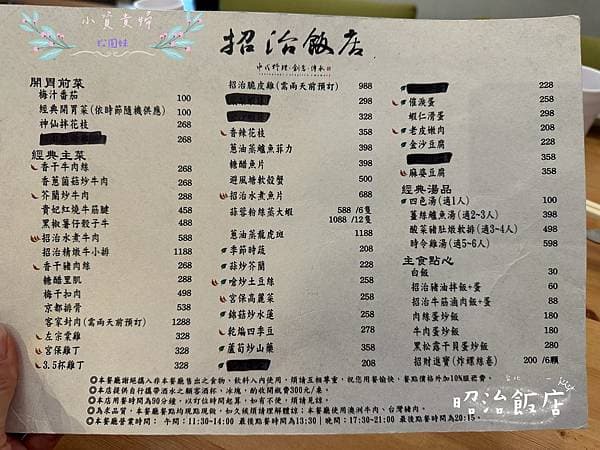 小資素婷
松園妹
招治飯店
中式料理·創意·傳承
開胃前菜
梅汁番茄 100
經典開胃菜(依時節隨機供應) 100
神仙拌花枝 268
268
經典主菜
香干牛肉絲 268
香蔥菌菇炒牛肉 268
芥蘭炒牛肉 268
貴妃紅燒牛筋腱 458
黑椒薯仔骰子牛 488
招治水煮牛肉 588
招治精燉牛小排 1188
香干豬肉絲 268
糖醋里肌 288
梅干扣肉 498
京都排骨 538
客家封肉(需兩天前預訂) 1288
左宗棠雞 328
宮保雞丁 328
3.5杯雞丁 328
招治脆皮雞(需兩天前預訂) 988
298
398
香辣花枝 358
蔥油蒸鱸魚菲力 398
糖醋魚片 398
避風塘軟殼蟹 500
招治水煮魚片 688
蒜蓉粉絲蒸大蝦 588 /6隻
1088 /12隻
蔥油蒸龍虎斑 1188
季節時蔬 208
蒜炒芥蘭 228
嗆炒土豆絲 258
宮保高麗菜 258
錦菇炒水蓮 258
乾煸四季豆 288
蘆筍炒山藥 358
288
228
催淚蛋 268
蝦仁滑蛋 298
老皮嫩肉 208
金沙豆腐 268
358
麻婆豆腐 358
經典湯品
四色湯(適1人) 100
薑絲鱸魚湯(適2~3人) 398
酸菜豬肚燉軟排(適3~4人) 498
時令雞湯(適5~6人) 598
主食點心
白飯 30
招治豬油拌飯+蛋 60
招治牛筋滷肉飯+蛋 88
肉絲蛋炒飯 180
牛肉蛋炒飯 180
黑松露干貝蛋炒飯 280
招財進寶(炸螺絲卷) 200 /6顆
◎本餐廳謝絕攜入非本餐廳售出之食物、飲料入內使用，煩請互相尊重，祝您用餐愉快、餐點價格外加10%服務費。
◎本店提供自行攜帶酒水之顧客酒杯、冰塊，酌收開瓶費300元/瓶。
◎本店用餐時間為90分鐘，以訂位時間起算，如有不便，煩請見諒。
◎為求品質，本餐廳餐點均現點現做，如久候煩請理解體諒；本餐廳使用澳洲牛肉、台灣豬肉。
◎本餐廳營業時間： 午間：11:30~14:00 最後點餐時間為13:30｜晚間：17:30~21:00 最後點餐時間為20:15。
昭治飯店